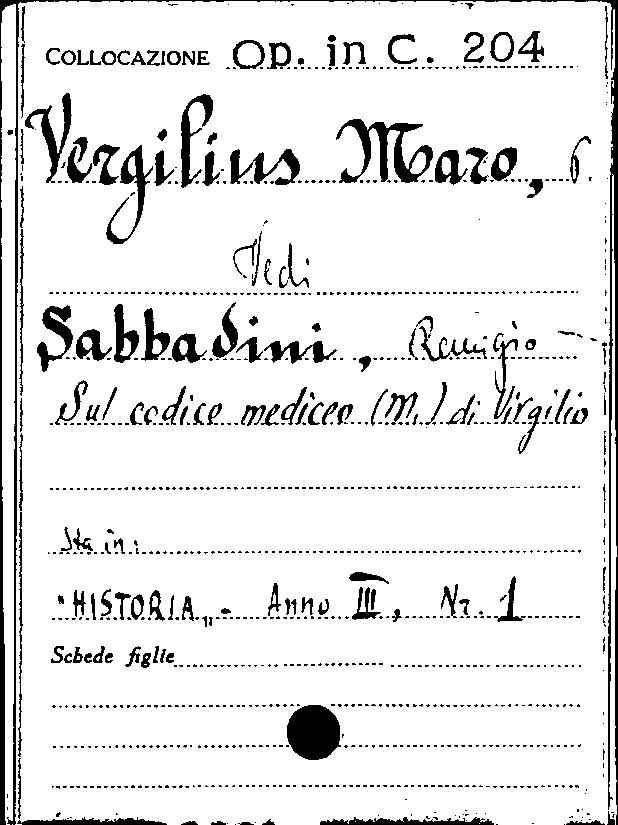 COLLOCAZIONE OP. in C. 204
Vergilius Maro, P.
Vedi
Sabbadini, Remigio
Sul codice mediceo (M.) di Virgilio
Sta in:
"HISTORIA„ - Anno III, Nr. 1
Schede figlie